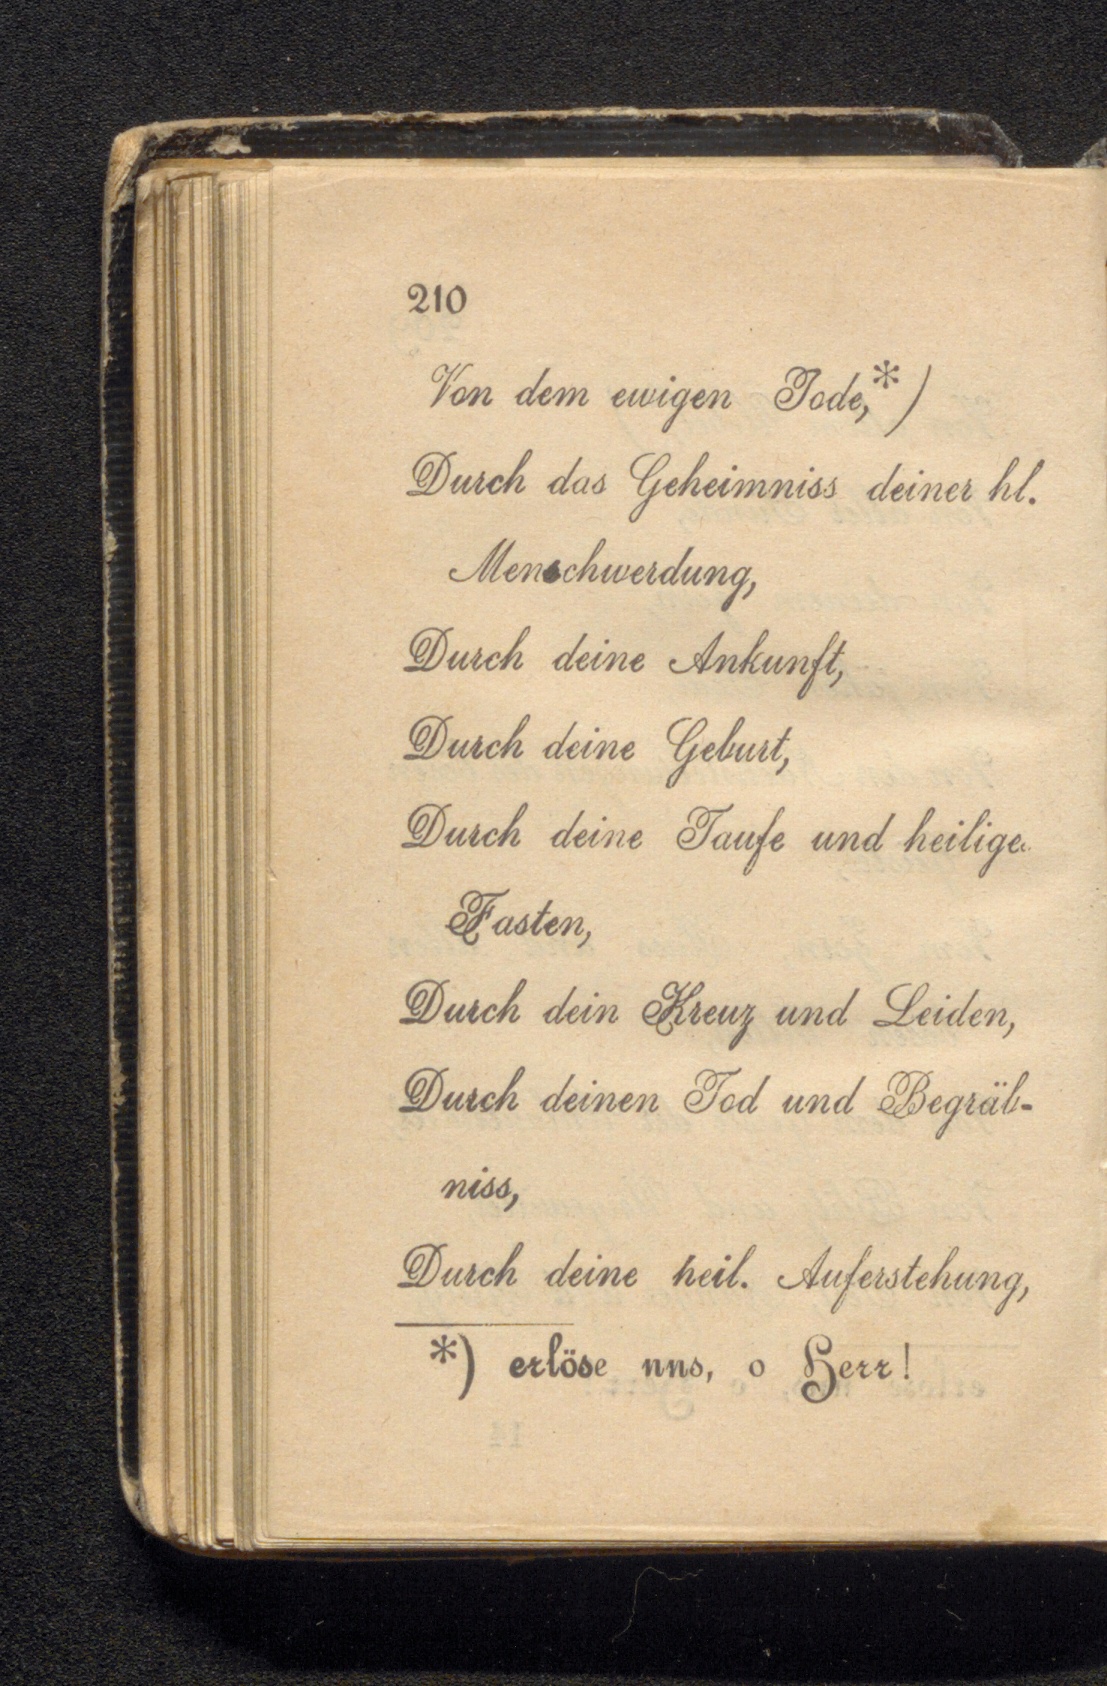 210
Von dem ewigen Tode,*)
Durch das Geheimniss deiner hl.
Menschwerdung,
Durch deine Ankunft,
Durch deine Geburt,
Durch deine Taufe und heilige
Fasten,
Durch dein Kreuz und Leiden,
Durch deinen Tod und Begräb-
niss,
Durch deine heil. Auferstehung,
*) erlöse nns, o Herr!